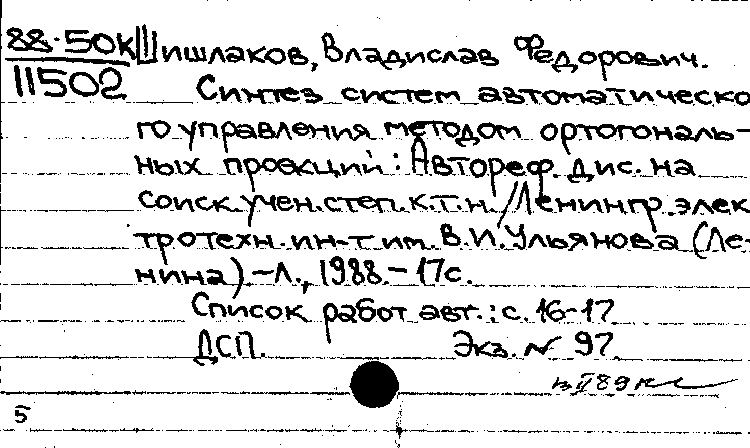 88-50к Шишлаков, Владислав Федорович.
11502 Синтез систем автоматическо
го управления методом ортогональ-
ных проекций: Автореф. дис. на
соиск. учен. степ. к.т.н. / Ленингр. элек
тротехн. ин-т им. В.И. Ульянова (Ле-
нина). - Л., 1988. - 17с.
Список работ авт.: с. 16-17
ДСП. Экз. № 97.
5